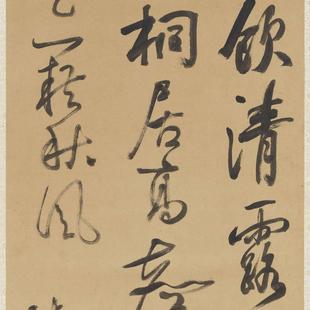 飲清露
桐居高聲
藉秋風